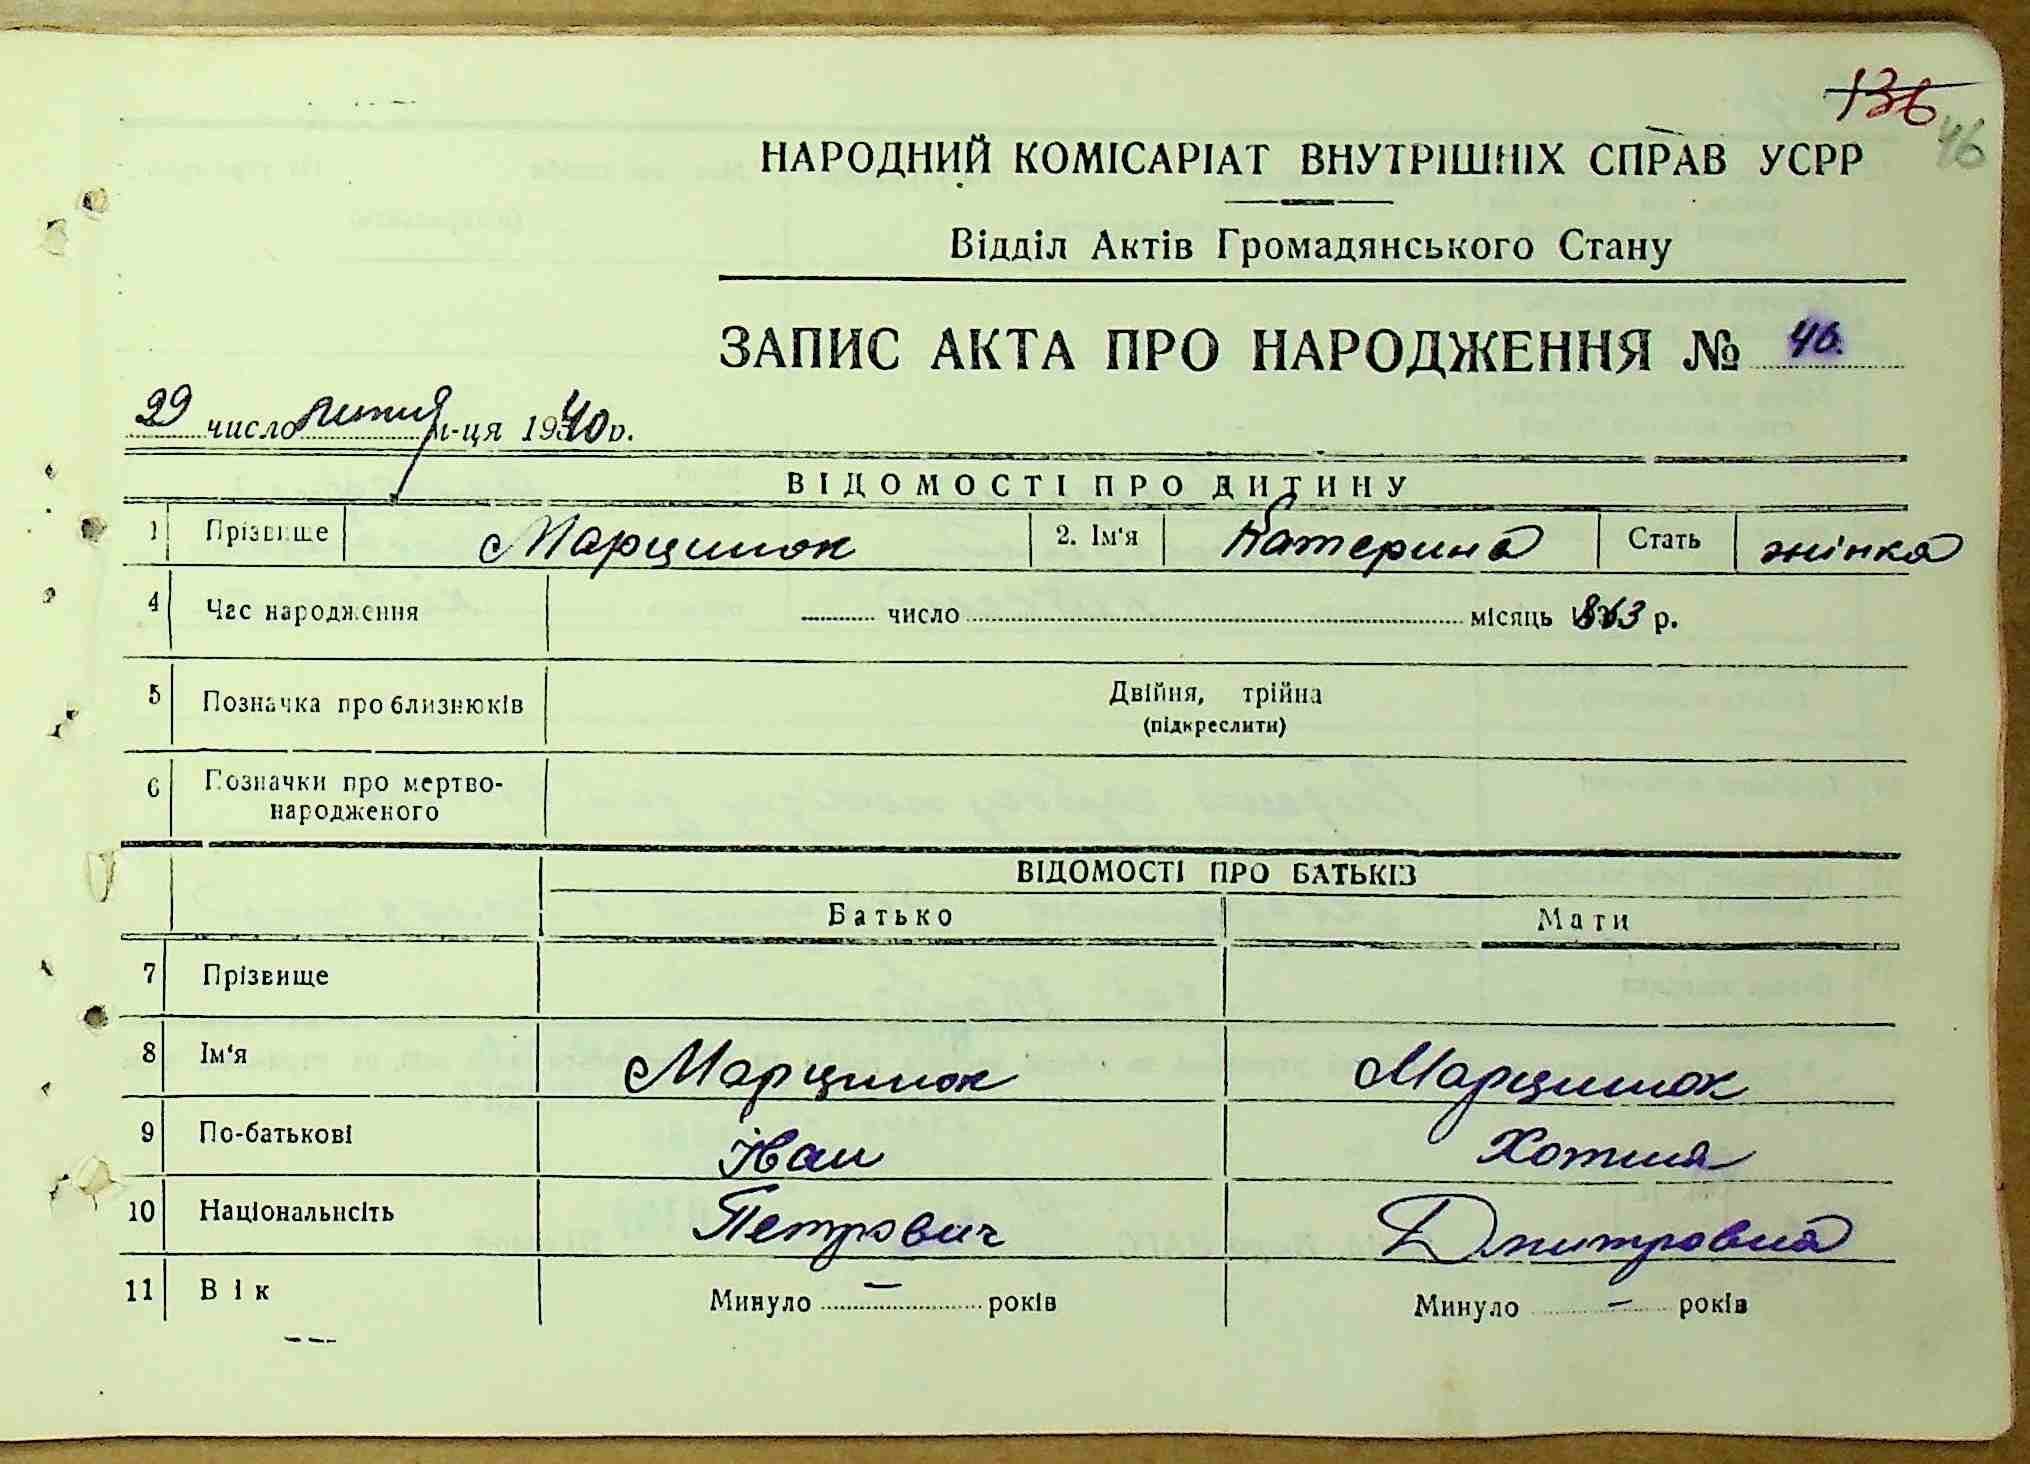 136 46
НАРОДНИЙ КОМІСАРІАТ ВНУТРІШНІХ СПРАВ УСРР
Відділ Актів Громадянського Стану
ЗАПИС АКТА ПРО НАРОДЖЕННЯ № 46.
29 число липня м-ця 1940 р.
ВІДОМОСТІ ПРО ДИТИНУ
1 Прізвище Марцинюк 2. Ім'я Катерина Стать жінка
4 Час народження число місяць 863 р.
5 Позначка про близнюків Двійня, трійна
(підкреслити)
6 Позначки про мертво-
народженого
ВІДОМОСТІ ПРО БАТЬКІВ
Батько Мати
7 Прізвище
8 Ім'я Марцинюк Марцинюк
9 По-батькові Іван Хотина
10 Національність Петрович Дмитровна
11 Вік Минуло – років Минуло – років